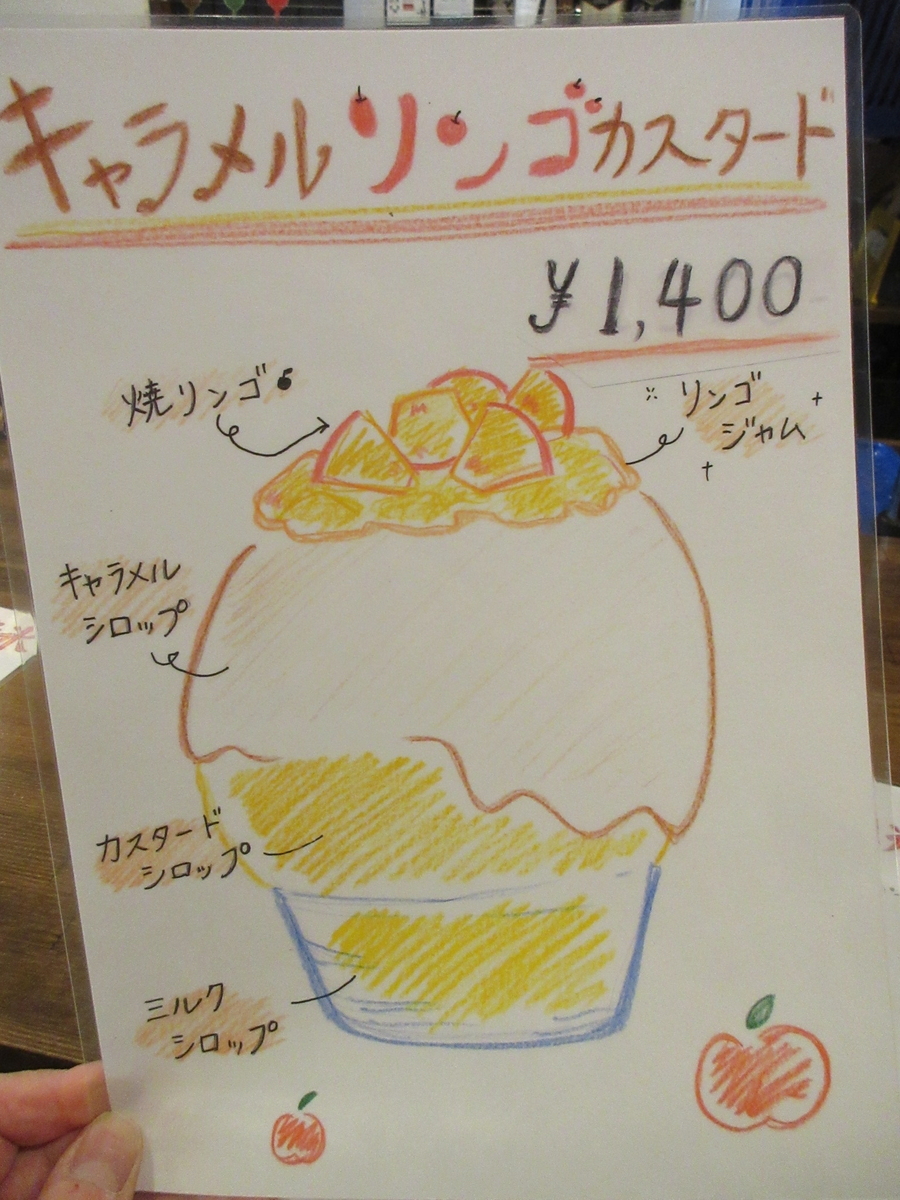 キャラメルリンゴカスタード
¥1,400
焼リンゴ
リンゴ
ジャム
キャラメル
シロップ
カスタード
シロップ
ミルク
シロップ